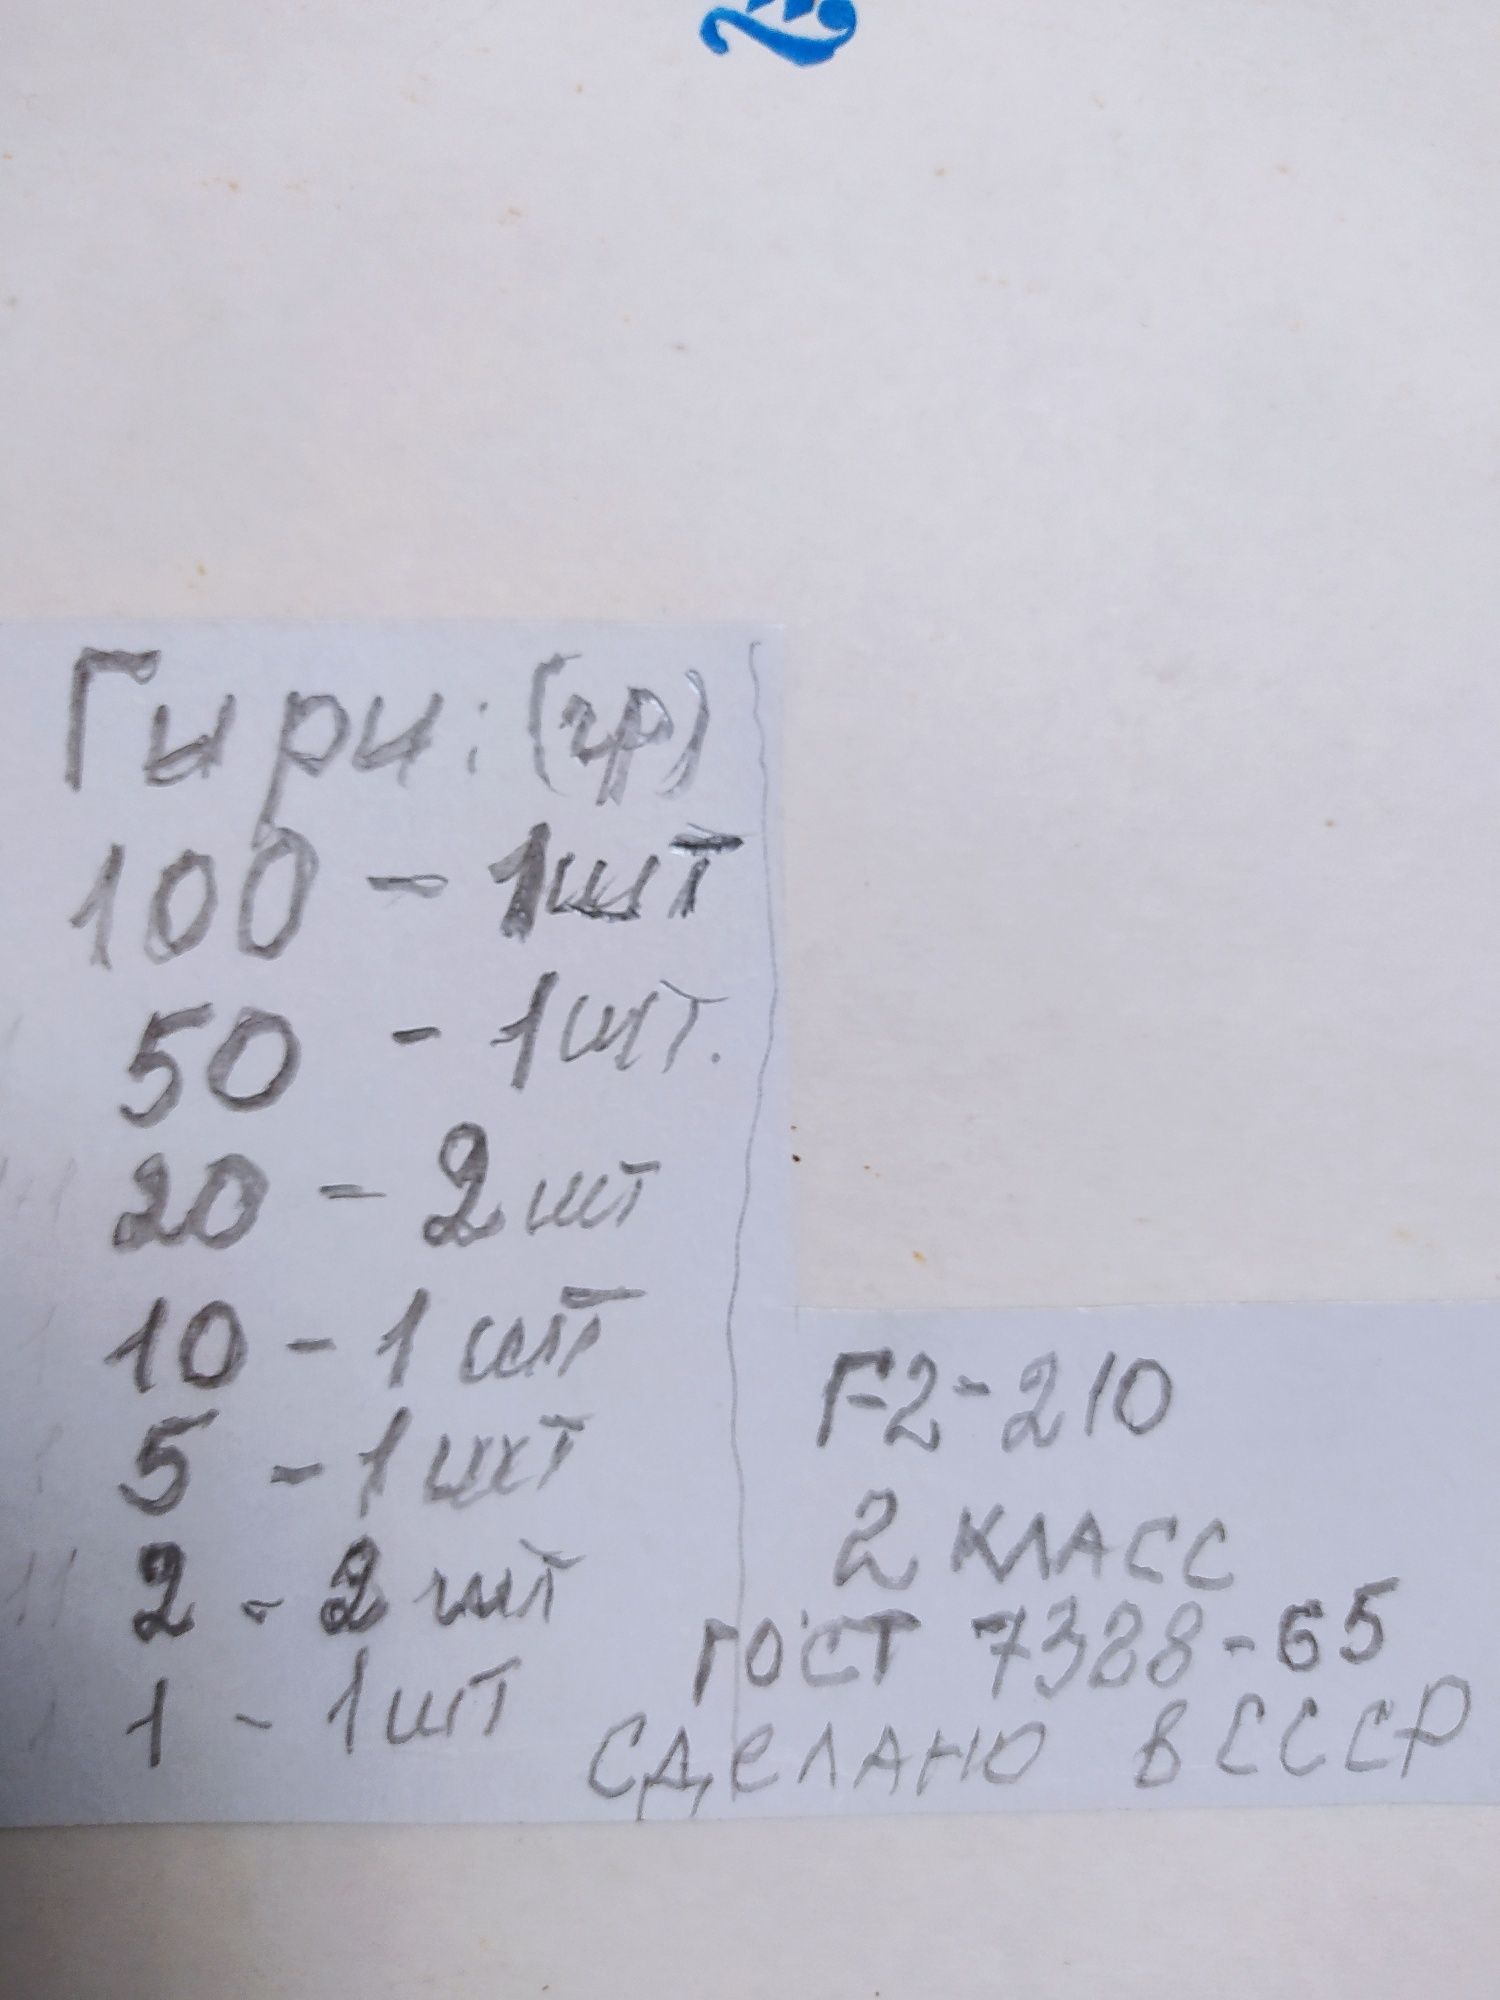 Гыри: (гр)
100 - 1шт
50 - 1шт.
20 - 2шт
10 - 1шт
5 - 1шт
2 - 2шт
1 - 1шт
Г-2-210
2 КЛАСС
ГОСТ 7328-65
СДЕЛАНО В СССР